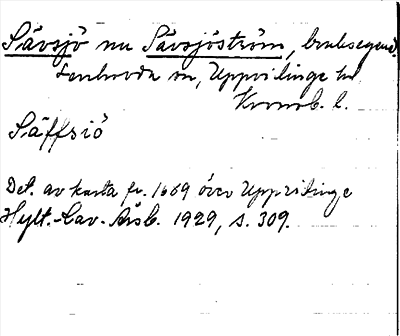 Sävsjö nu Sävsjöström, bruksegend.
Lenhovda sn, Uppvidinge hd
Kronob. l.
Säffsiö
Det. av karta fr. 1669 över Uppvidinge
Hylt.-Cav. Årsb. 1929, s. 309.